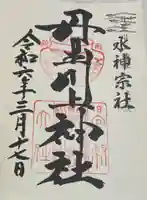 水神宗社
丹生川上神社
令和六年三月十七日